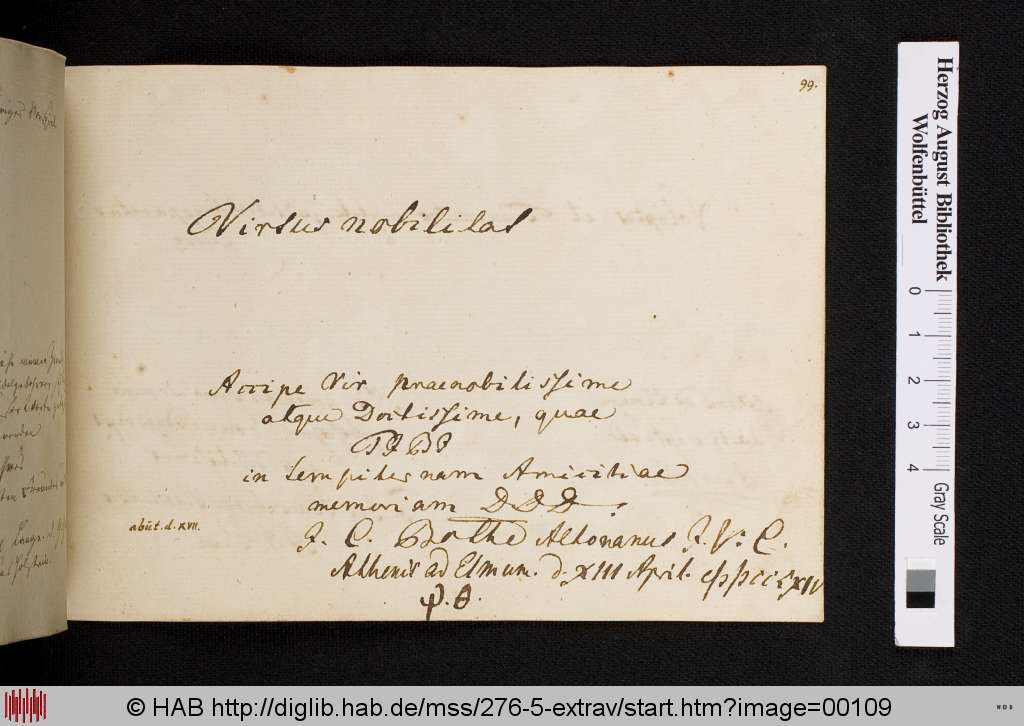 99.
Virtus nobilitat
Accipe Vir praenobilissime
atque Doctissime, quae
in sempiternam Amicitiae
memoriam D.D.D.
abiit. d. XVII.
J. C. Bothe Altonanus J. V. C.
Athenis ad Elmum. d. XIII April.
Herzog August Bibliothek
Wolfenbüttel
0 1 2 3 4
Gray Scale
© HAB http://diglib.hab.de/mss/276-5-extrav/start.htm?image=00109
WDB